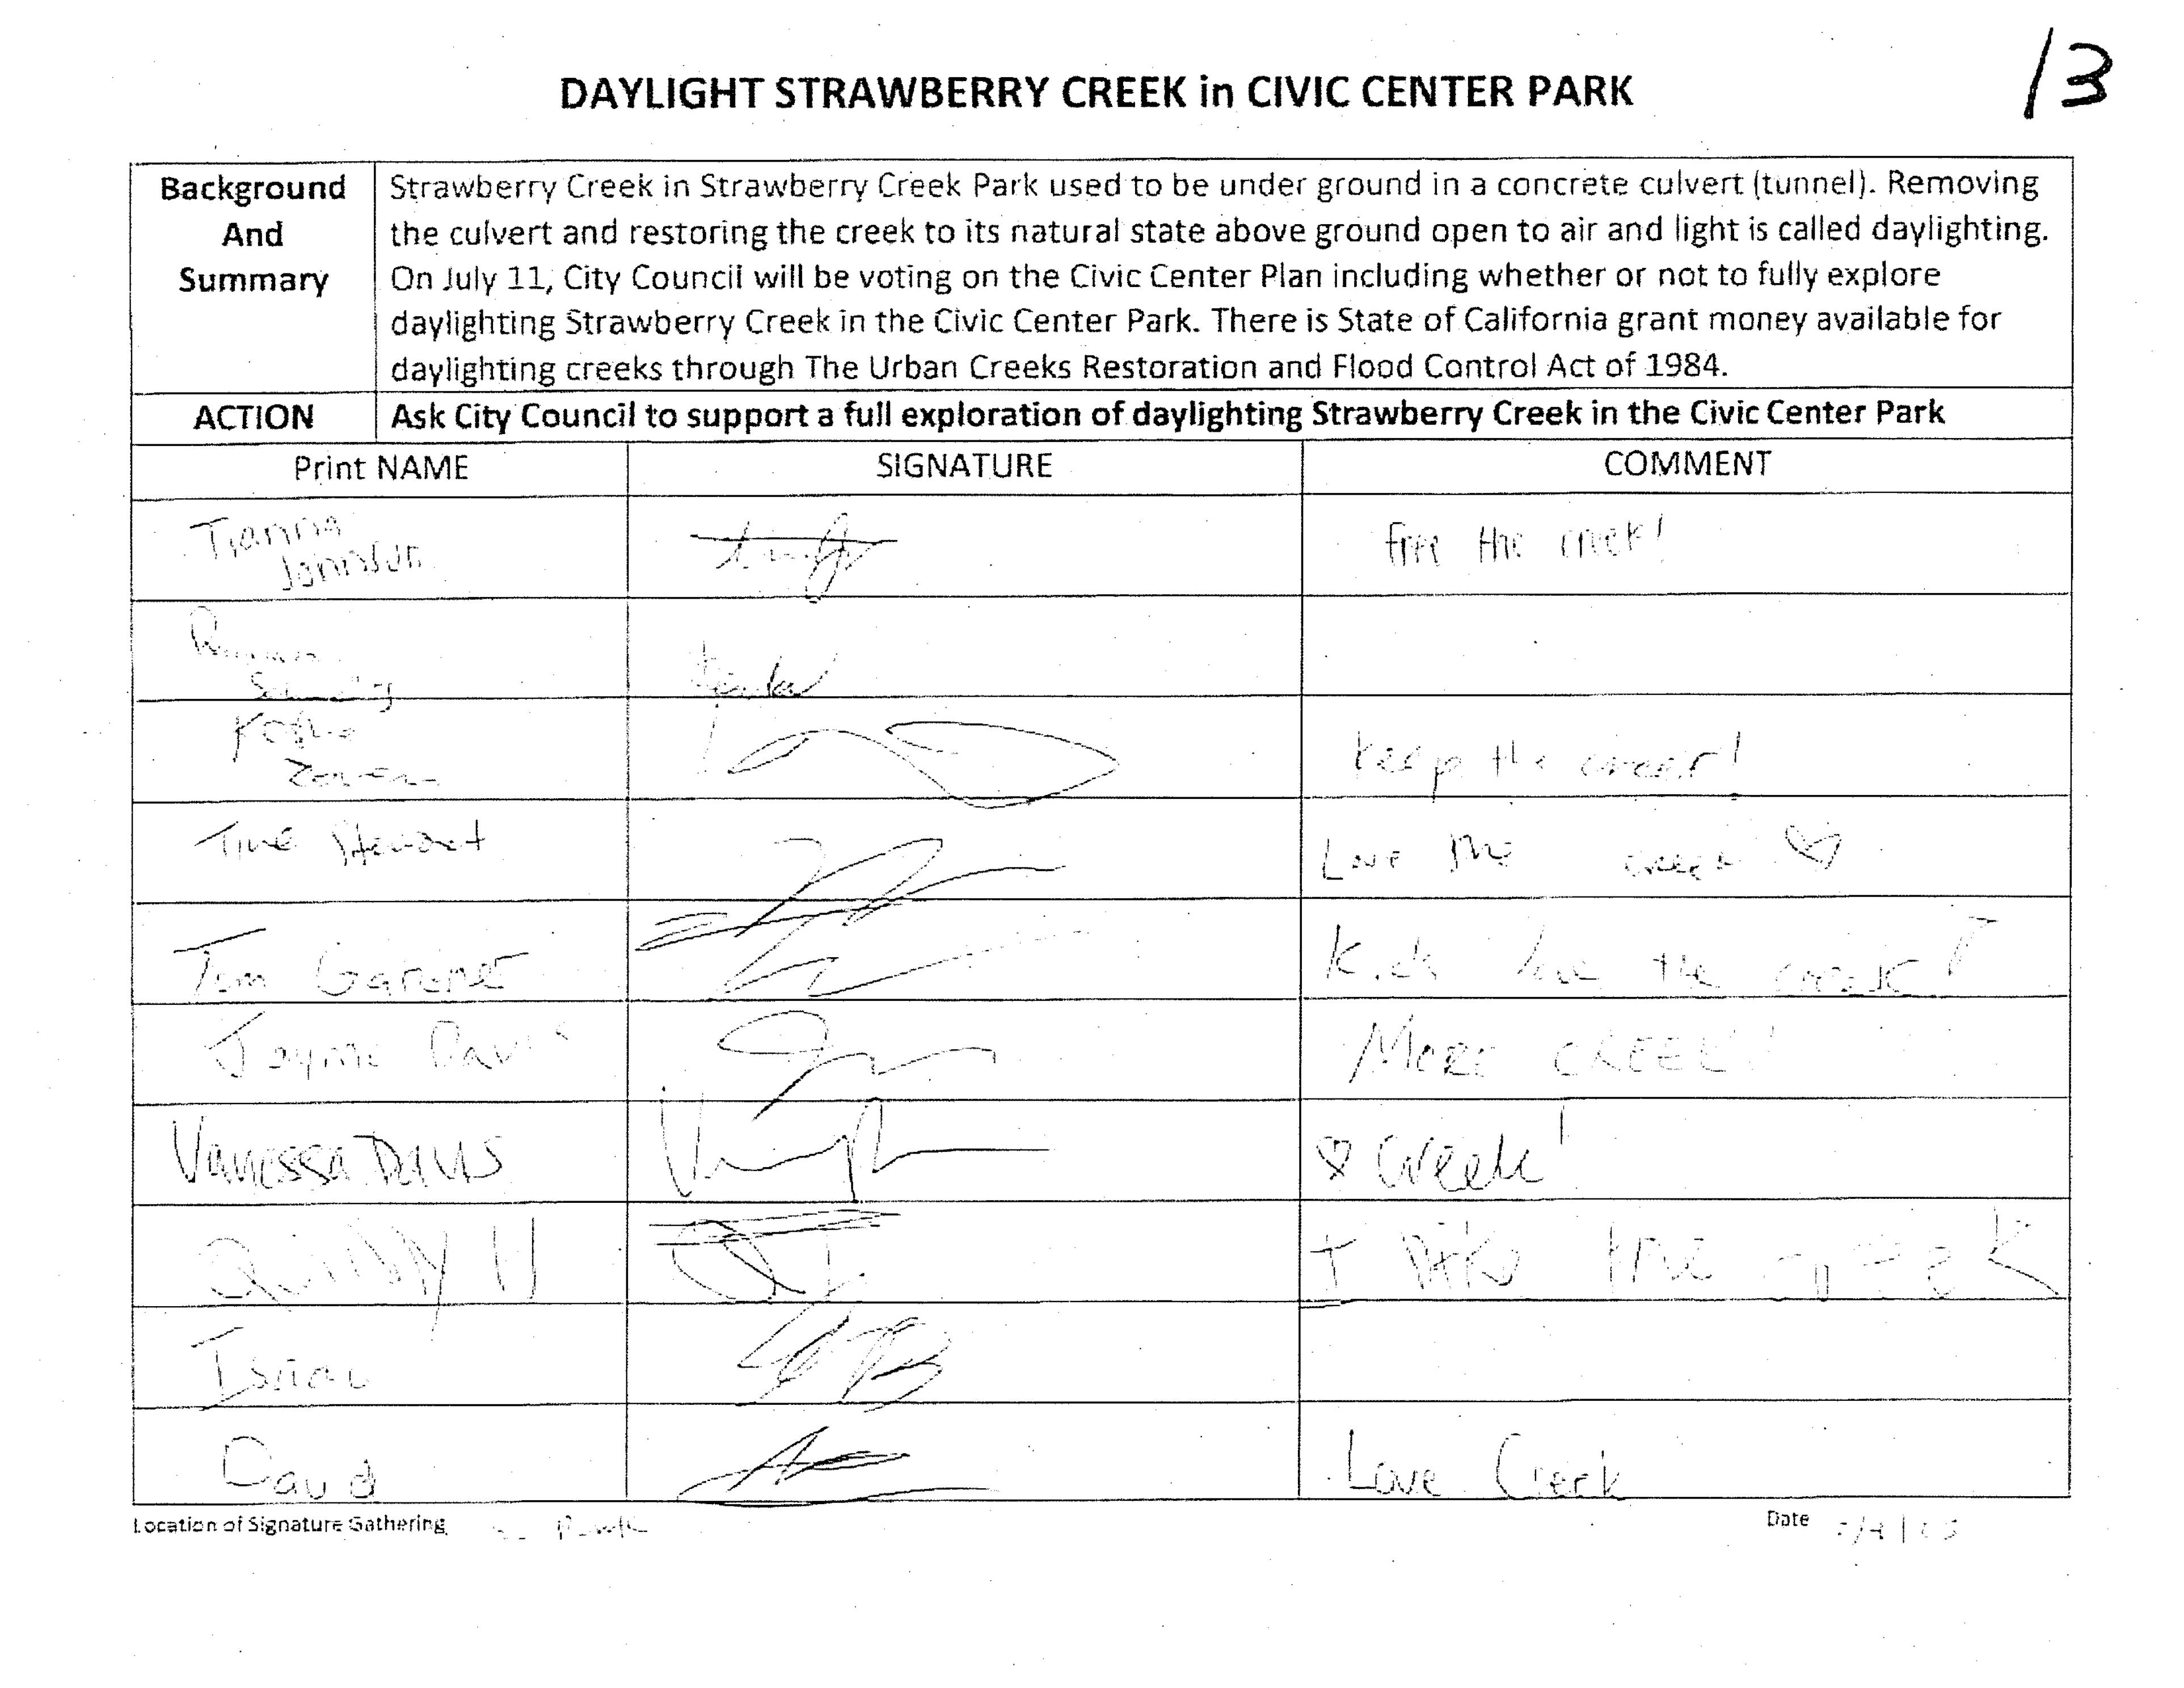 13
DAYLIGHT STRAWBERRY CREEK in CIVIC CENTER PARK
Background
And
Summary
Strawberry Creek in Strawberry Creek Park used to be under ground in a concrete culvert (tunnel). Removing
the culvert and restoring the creek to its natural state above ground open to air and light is called daylighting.
On July 11, City Council will be voting on the Civic Center Plan including whether or not to fully explore
daylighting Strawberry Creek in the Civic Center Park. There is State of California grant money available for
daylighting creeks through The Urban Creeks Restoration and Flood Control Act of 1984.
ACTION
Ask City Council to support a full exploration of daylighting Strawberry Creek in the Civic Center Park
Print NAME
SIGNATURE
COMMENT
Tianna
Johnson
free the creek!
Keep the creek!
Stewart
Love the creek ♡
Tom Gardner
Kids love the creek!
Jayme Davis
MORE CREEK!
VANESSA DAVIS
♡ Creek!
the
David
Love Creek
Location of Signature Gathering
Park
Date